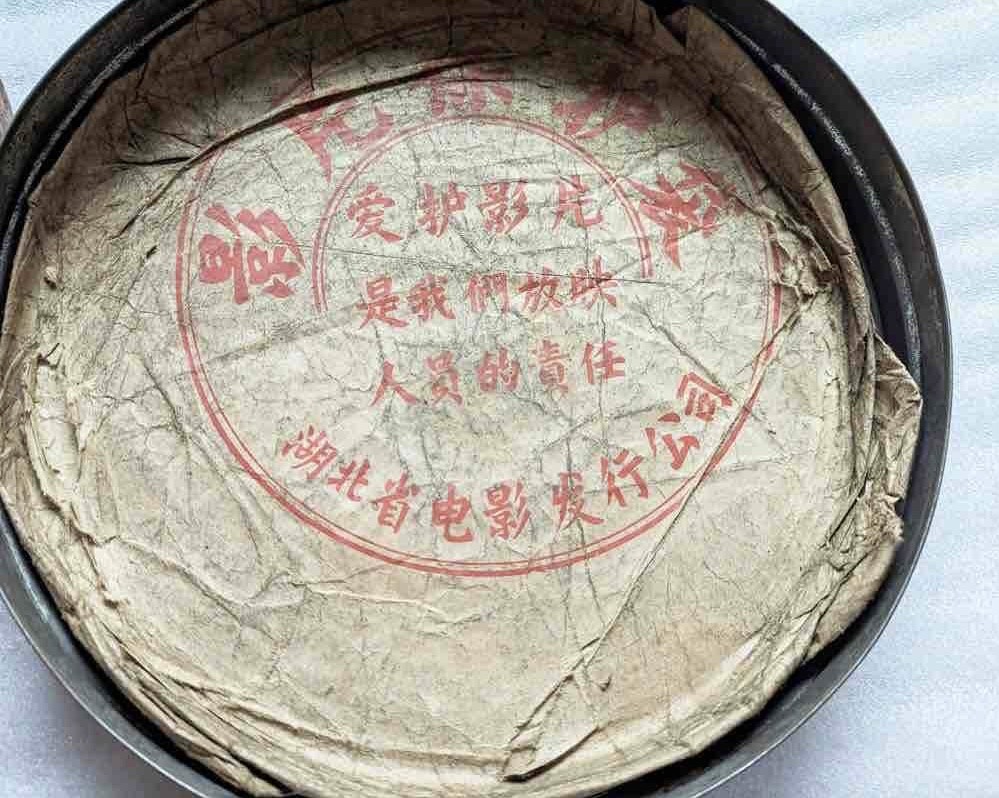 影片保护袋
爱护影片
是我們放映
人员的責任
湖北省电影发行公司